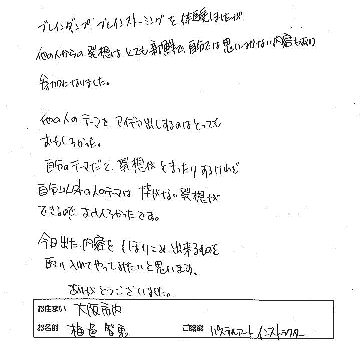 ブレインダンプ、ブレインストーミングを体験しましたが
他の人からの発想はとても新鮮で、自分では思いつかない内容もあり
参考になりました。
他の人のテーマをアイデア出しするのはとっても
おもしろかった。
自分のテーマだと、発想が止まったりするけれど
自分以外の人のテーマは 発想が
できるので おもしろかったです。
今日出た内容を しぼりこみ 出来るものを
取り入れてやってみたいと思います。
ありがとうございました。
お住まい 大阪市内
お名前
ご職業 パステルアートインストラクター